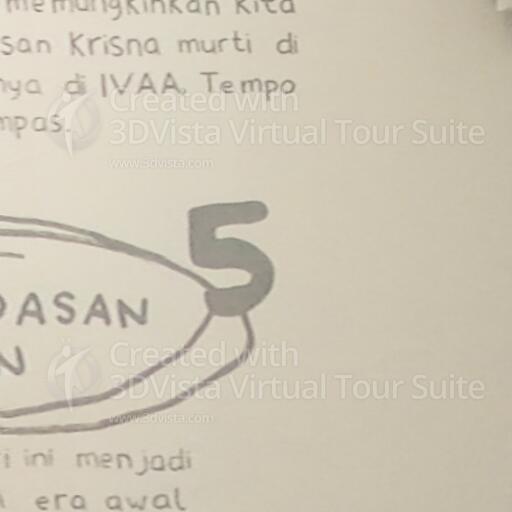 memungkinkan kita
san Krisna murti di
nya di IVAA. Tempo
mpas.
Created with
3DVista Virtual Tour Suite
www.3dvista.com
5
DASAN
N
Created with
3DVista Virtual Tour Suite
www.3dvista.com
i ini menjadi
era awal